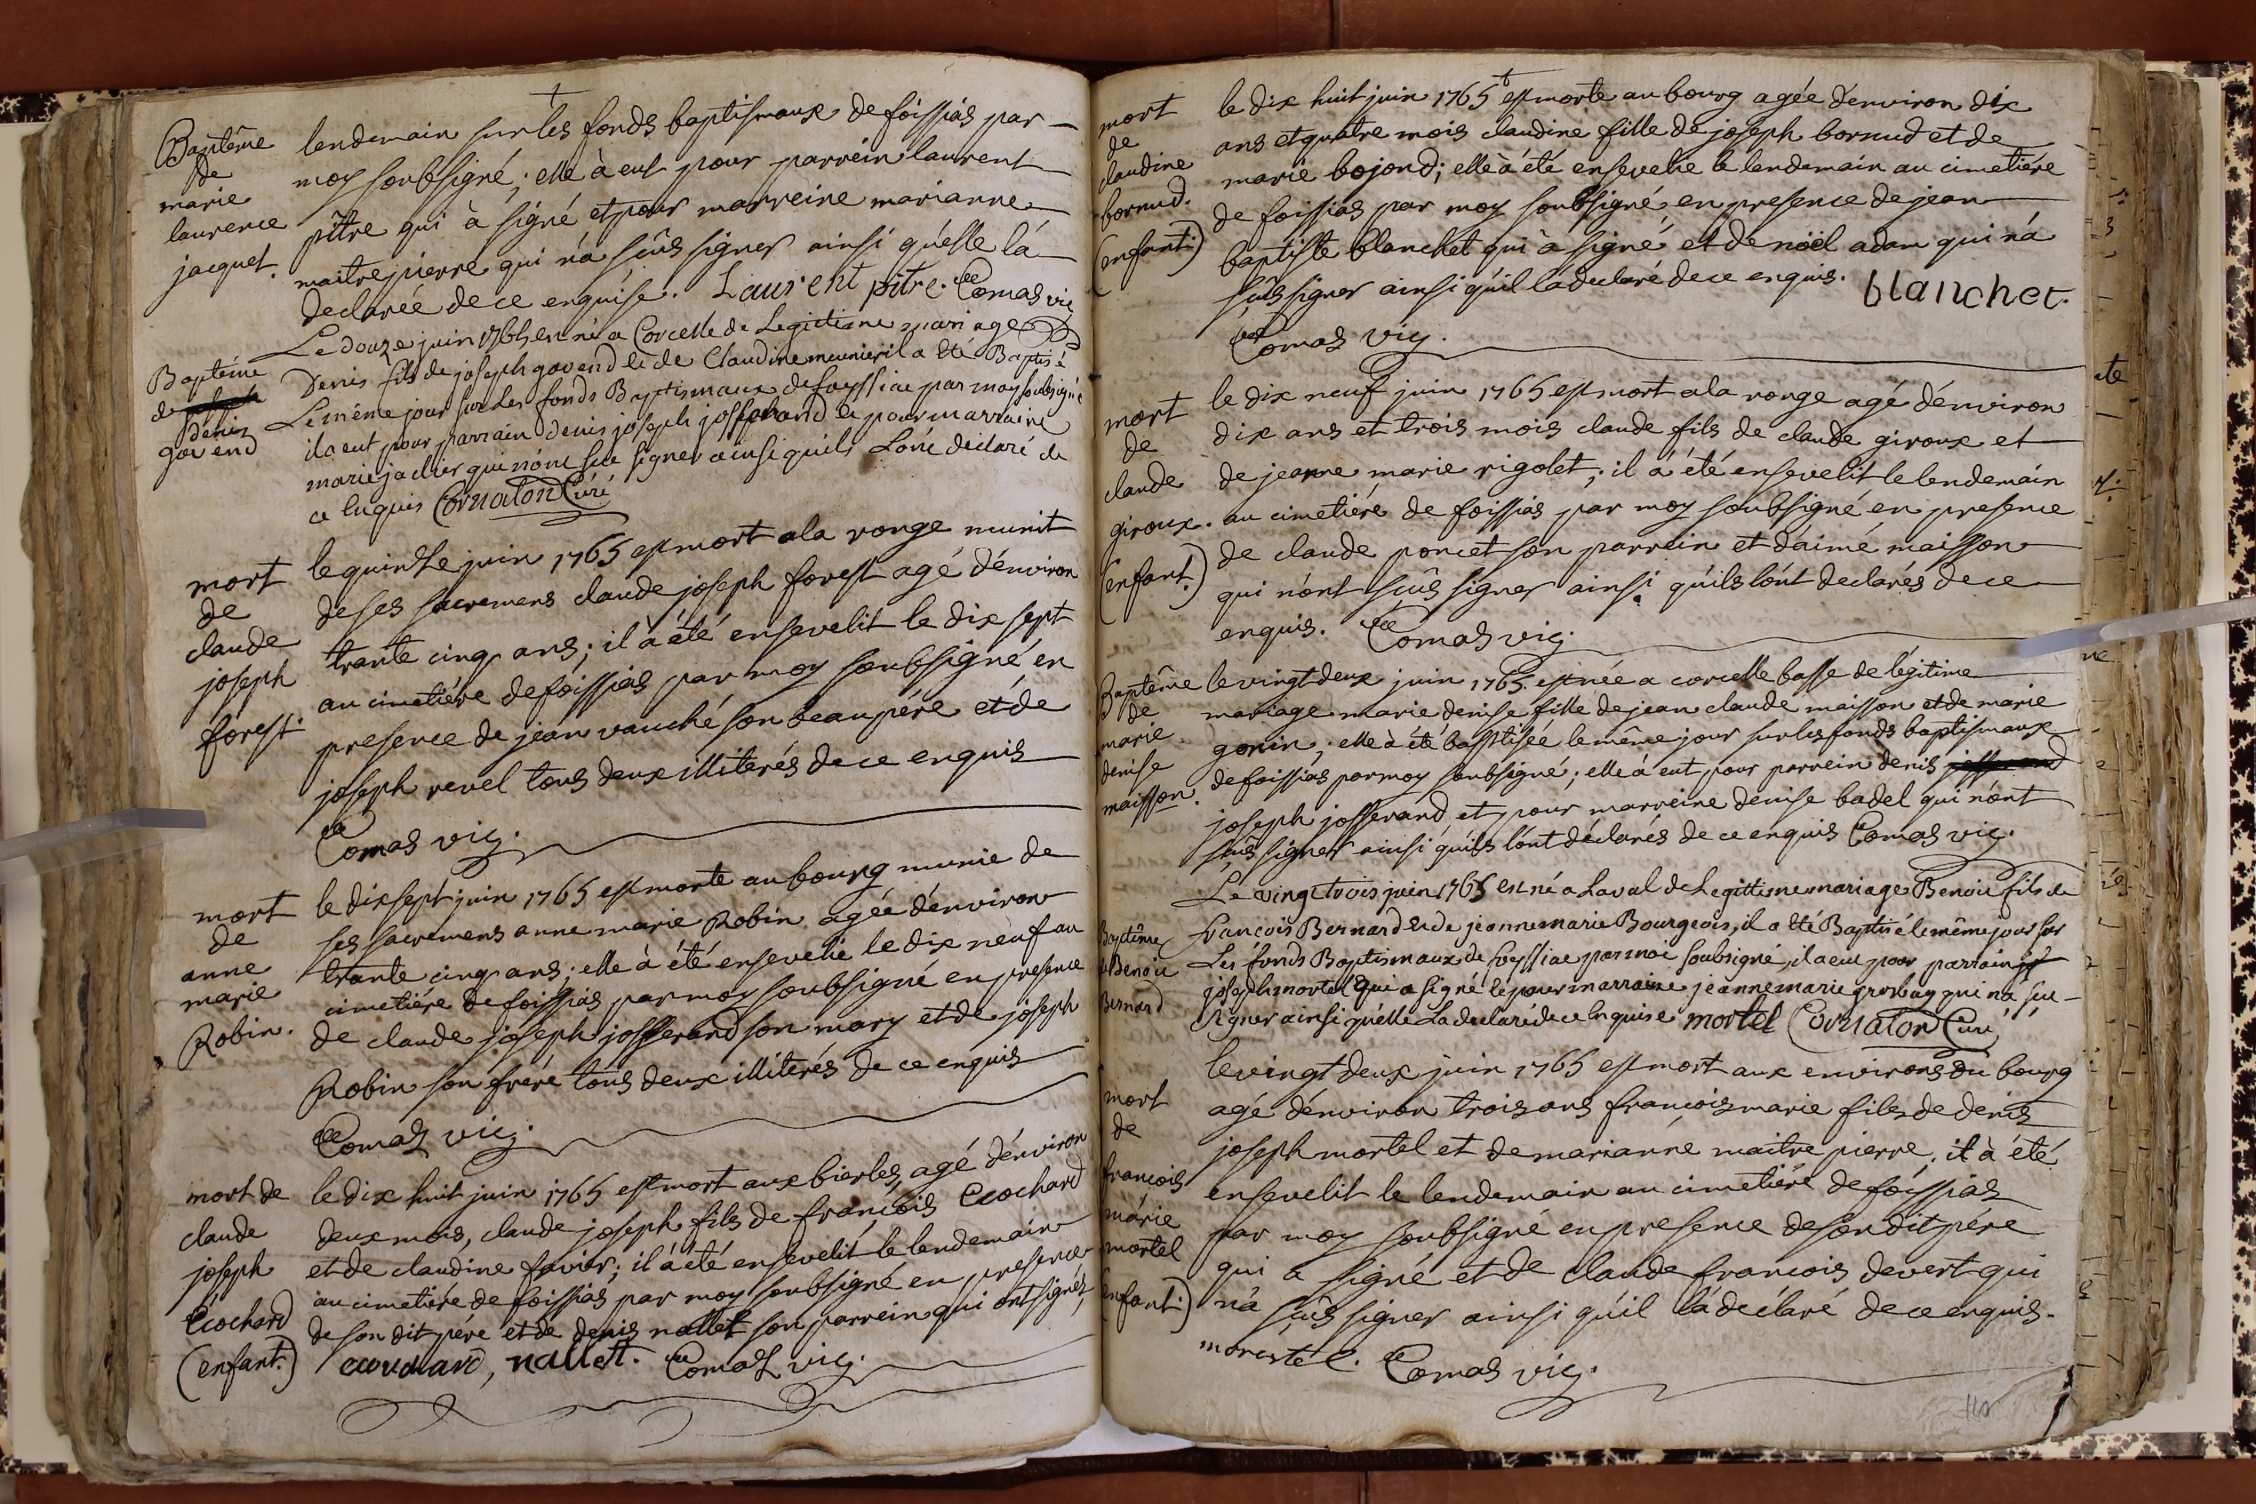 Baptême
de
marie
laurence
jacquet.
lendemain sur les fonds baptismaux de foissias par
moy soubsigné; elle à eut pour parrein laurent
pître qui à signé et pour marreine marianne
maitrepierre qui n'a sçûs signer ainsi qu'elle l'á
declarée de ce enquise. Laurent pitre. Comas vic
Baptéme
de
denis
gavend
Le douze juin 1765 est né a Corcelle de Legittime mariage
Denis fils de joseph gavend et de Claudine meunier il a été Baptisé
Le même jour sur les fonds Baptismaux de foyssiac par moy soubsigné
il a eut pour parrain denis joseph josserand et pour marraine
marie jaclier qui n'ont sçu signer ainsi quils L'ont declaré de
ce Enquis Cornaton Curé
mort
de
claude
joseph
forest.
le quinze juin 1765 est mort a la ronge munit
de ses sacremens claude joseph forest agé d'environ
trante cinq ans; il à été ensevelit le dix sept
au cimetiére de foissias par moy soubsigné en
presence de jean vauché son beaupére et de
joseph revel tous deux illiterés de ce enquis
Comas vic.
mort
de
anne
marie
Robin.
le dix sept juin 1765 est morte au bourg munie de
ses sacremens anne marie Robin agée d'environ
trante cinq ans; elle à été ensevelie le dix neuf au
cimetiére de foissias par moy soubsigné en presence
de claude joseph josserand son mary et de joseph
Robin son frere tous deux illiterés de ce enquis
Comas vic.
mort de
claude
joseph
Ecochard
(enfant.)
le dix huit juin 1765 est mort aux bierles, agé d'environ
deux mois, claude joseph fils de francois Ecochard
et de claudine favier; il á été ensevelit le lendemain
au cimetiere de foissias par moy soubsigné en presence
de son dit pére et de denis nallet son parrein qui ont signés
ecouchard, nallett. Comas vic.
mort
de
claudine
bornud.
(enfant.)
le dix huit juin 1765 est morte au bourg agée d'environ dix
ans et quatre mois claudine fille de joseph bornud et de
marie bojond; elle à été ensevelie le lendemain au cimetiére
de foissias par moy soubsigné en presence de jean
baptiste blanchet qui à signé et de noël adam qui n'á
sçûs signer ainsi qu'il l'á declaré de ce enquis. blanchet.
Comas vic.
mort
de
claude
giroux.
(enfant.)
le dix neuf juin 1765 est mort a la ronge agé d'environ
dix ans et trois mois claude fils de claude giroux et
de jeanne marie rigolet; il a été ensevelit le lendemain
au cimetiére de foissias par moy soubsigné en presence
de claude poncet son parrein et d'aimé maisson
qui n'ont sçûs signer ainsi qu'ils l'ont declarés de ce
enquis. Comas vic.
Baptême
de
marie
denise
maisson.
le vingt deux juin 1765 est née a corcelle basse de légitime
mariage marie denise fille de jean claude maisson et de marie
gonin; elle à été baptisée le même jour sur les fonds baptismaux
de foissias par moy soubsigné; elle à eut pour parrein denis josserand
joseph josserand et pour marreine denise badel qui n'ont
sçûs signer ainsi qu'ils l'ont déclarés de ce enquis Comas vic.
Baptême
de Benoit
Bernard
Le vingt trois juin 1765 est né a Laval de Legittime mariage Benoit fils de
francois Bernard et de jeanne marie Bourgeois, il a été Baptisé le même jour sur
Les fonds Baptismaux de foyssiac par moi soubsigné, il a eut pour parrain
joseph mortel qui a signé et pour marraine jeanne marie grosbuy qui n'a sçu
signer ainsi qu'elle La declaré de ce Enquise mortel Cornaton Curé
mort
de
francois
marie
mortel
(enfant.)
le vingt deux juin 1765 est mort aux environs du bourg
agé d'environ trois ans francois marie fils de denis
joseph mortel et de marianne maitre pierre; il à été
ensevelit le lendemain au cimetiére de foissias
par moy soubsigné en presence de son dit pére
qui a signé et de claude francois devert qui
n'a sçûs signer ainsi qu'il l'á déclaré de ce enquis.
Comas vic.